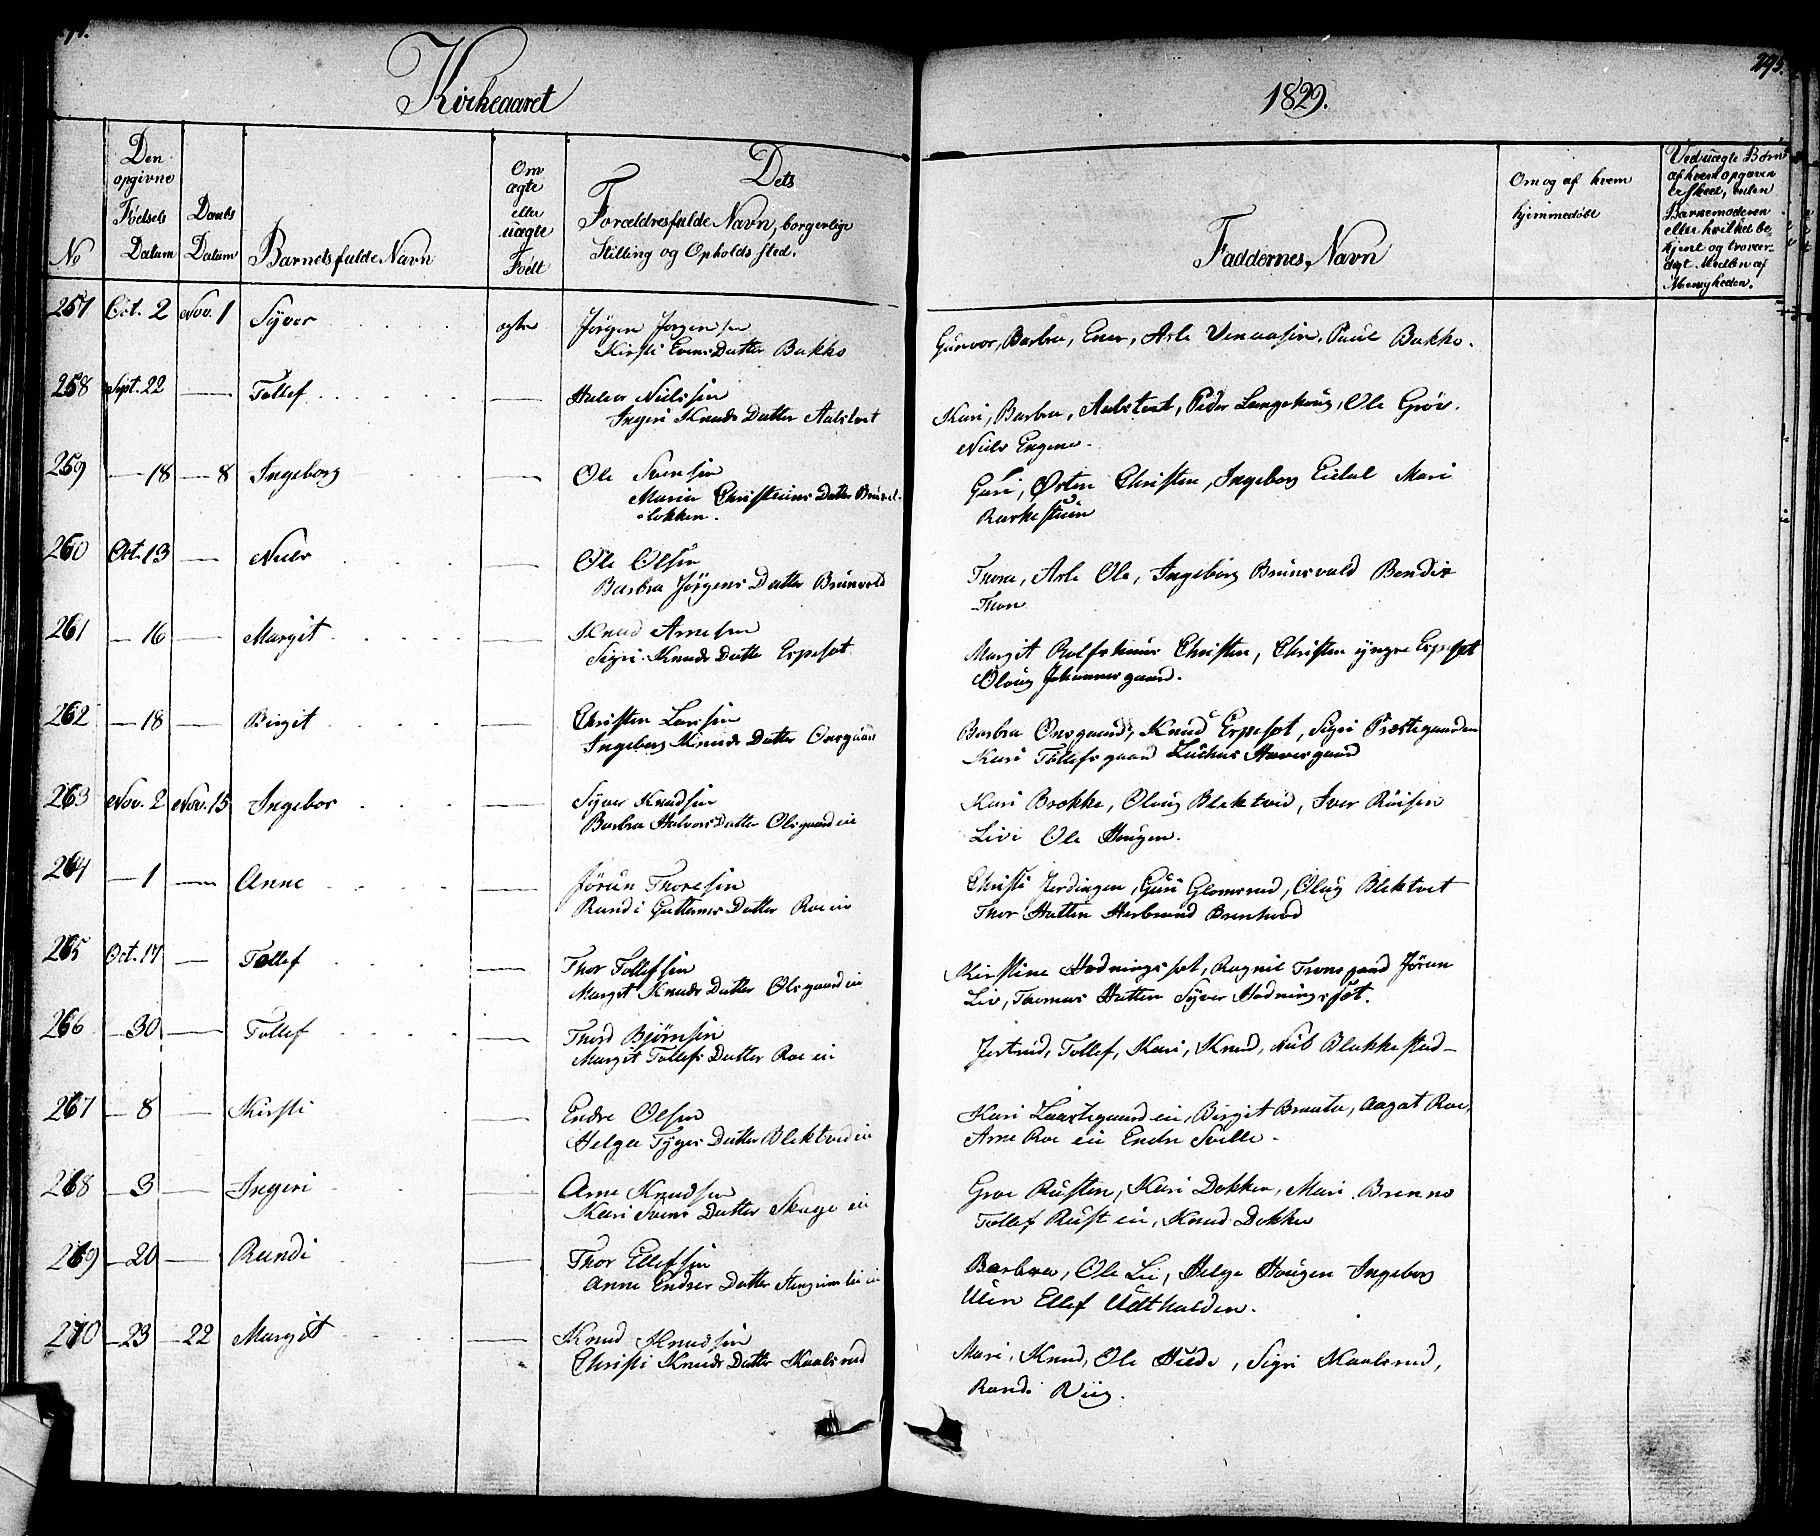 Kirkeaaret
1829.
295.
No
Den opgivne Födsels Datum
Daabs Datum
Barnets fulde Navn
Om ægte eller uægte Födt
Dets Forældres fulde Navn, borgerlige Stilling og Opholds sted.
Faddernes Navn
Om og af hvem hjemmedöbt
Ved uægte Börn af hvem opgaven er skeet, enten Barnemoderen eller hvilket bekjent og troværdigt Medlem af Menigheden.
257 Oct. 2 Nov. 1 Syver ægte Jörgen Jorgensen
Kirsti Evens Datter Bakko
Gunvor, Barbra, Ener, Asle Paul Bakko.
258 Sept. 22 — Tollef — Halvor Nielssen
Ingeri Knuds Datter Aalstvet
Kari, Barbra, Aalstvet, Peder Langehoug, Ole Gröv.
Niels Engene.
259 — 18 — 8 Ingeborg — Ole Svensen
Maria Christens Datter
lokken.
Guri, Østen Christen, Ingeborg Eidal Mari
Rarkestuen
260 Oct. 13 — Niels — Ole Olsen
Barbra Jörgens Datter Brunvold
Thora, Asle Ole, Ingeborg Brunsvold Bendix
Thon
261 — 16 — Margit — Knud Arnesen
Sigri Knuds Datter Espeset
Margit Rolfshuus Christen, Christen yngre Espeset
Oloug Johannesgaard.
262 — 18 — Birgit — Christen Larsen
Ingeborg Knuds Datter Onsgaard
Barbra Onsgaard, Knud Espeset, Sigri Præstegaarden
Kari Tollefsgaard Zachus Haavesgaard
263 Nov. 2 Nov. 15 Ingebor — Syver Knudsen
Barbra Halvors Datter Olsgaard eie
Kari Brokke, Oloug Blektved, Iver Ruisen
Livi Ole Hougen.
264 — 1 — Anne — Jörun Thoresen
Randi Guttorms Datter Roe eie
Christi Jerdingen, Guri Glomsrud, Oloug Blektvet
Thor Hutten Herbrand Brenhovd
265 Oct. 17 — Tollef — Thor Tollefsen
Margit Knuds Datter Olsgaard eie
Kirstine Hodningsset, Ragnil Tronsgaard Jörun
Liv, Thomas Hutten Syver Hodningsset.
266 — 30 — Tollef — Thord Björnsen
Margit Tollefs Datter Roe eie
Jertrud, Tollef, Kari, Knud, Niels Blakkestad
267 — 8 — Kirsti — Endre Olsen
Helga Tyges Datter Blektved eie
Kari Laastegaard eie, Birgit Braata, Aagot Roe,
Arne Roe eie Endre Sville.
268 — 3 — Ingeri — Arne Knudsen
Kari Svens Datter Skage eie
Groe Rusten, Kari Dokken, Mari Brenno
Tollef Rust eie, Knud Dokken
269 — 20 — Randi — Thor Ellefsen
Anne Endres Datter Stengrimslie eie
Barbra, Ole Lie, Helge Hougen Ingeborg
Ulen Ellef Udthalden.
270 — 23 — 22 Margit — Knud Knudsen
Christi Knuds Datter Kaalsrud
Mari, Knud, Ole Hilde, Sigri Kaalsrud,
Randi Riig.